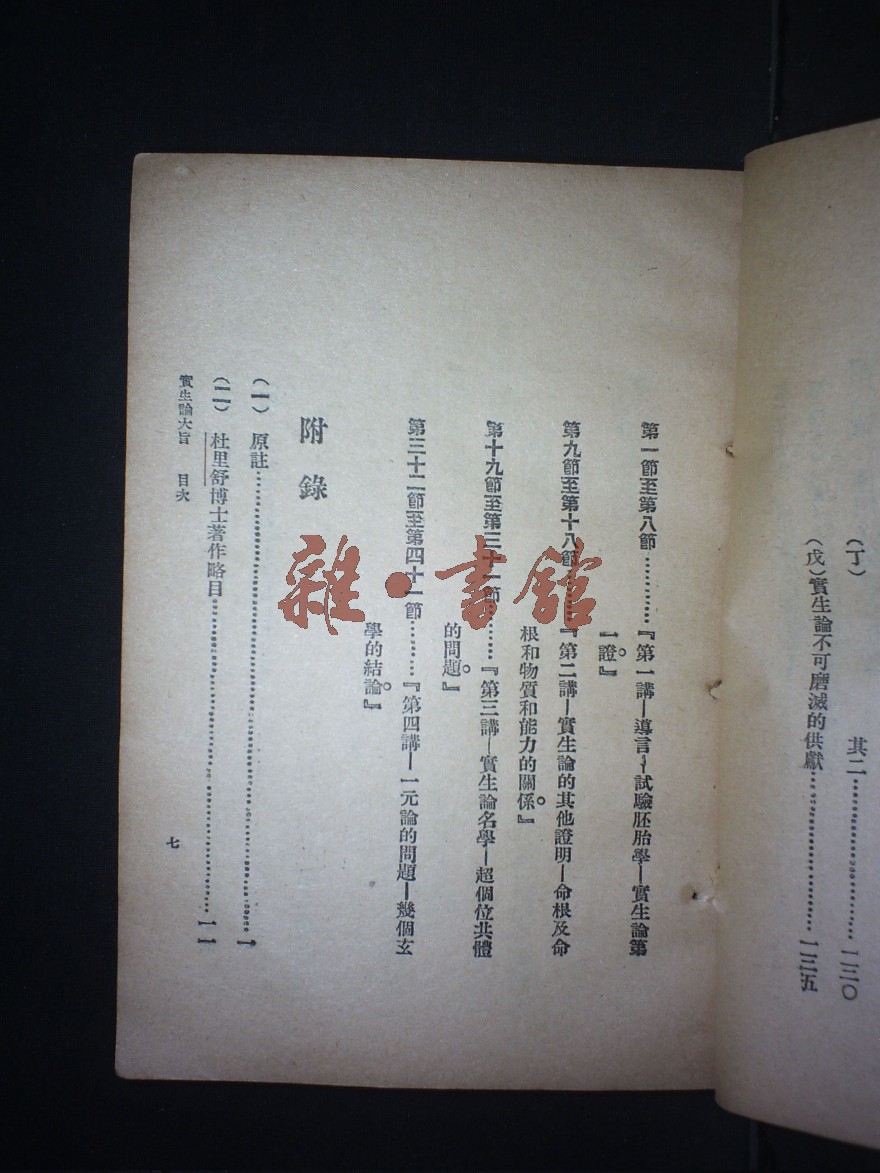 (丁) 其二……………一三〇
(戊) 實生論不可磨滅的供獻……………一三五
第一節至第八節……………『第一講—導言—試驗胚胎學—實生論第
一證。』
第九節至第十八節………『第二講—實生論的其他證明—命根及命
根和物質和能力的關係。』
第十九節至第三十一節………『第三講—實生論名學—超個位共體
的問題。』
第三十二節至第四十一節………『第四講—一元論的問題—幾個玄
學的結論。』
附錄
(一) 原註……………一
(二) 杜里舒博士著作略目……………一一
實生論大旨 目次
七
雜·書館